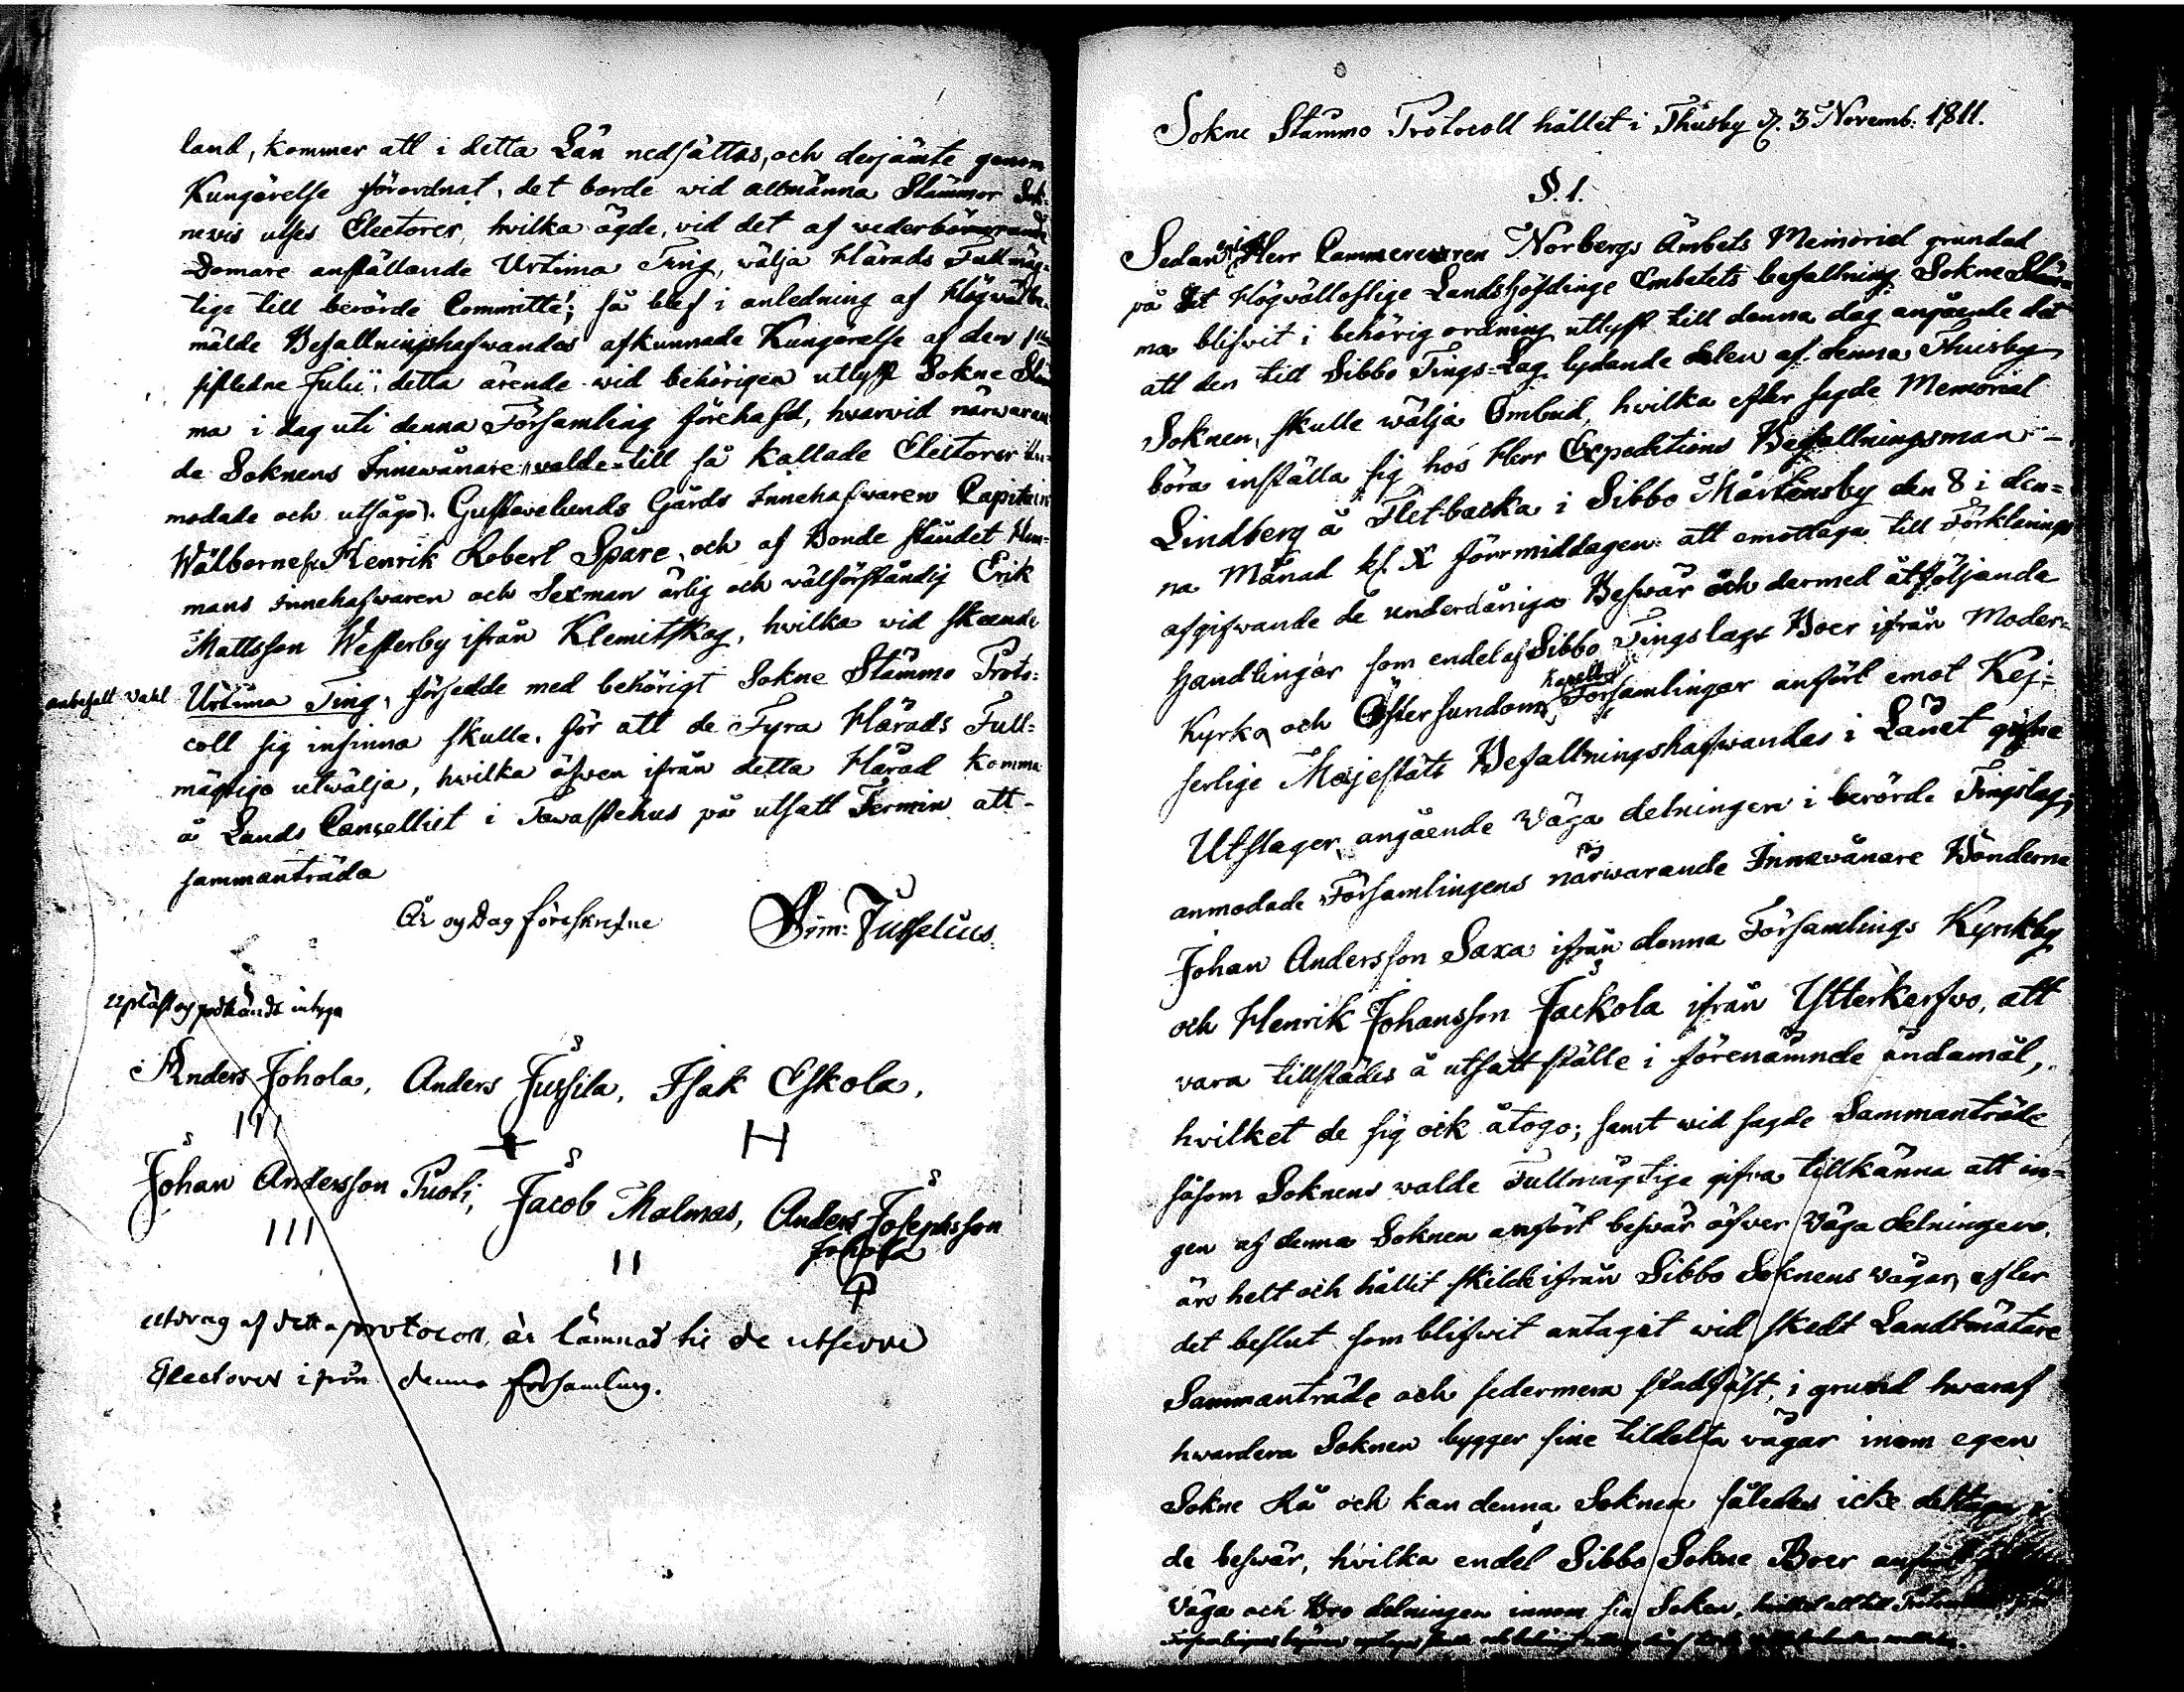 land, kommer att i detta Län nedsättas, och derjämte genom
Kungörelse förordnat, det borde wid allmänna Stämmor Sok-
newis utses Electorer, hvilka ägde, vid det af wederbörande
Domare anställande Urtima Ting, wälja Härads Fullmäg-
tige till berörde Committé; så blef i anledning af Högwälbe-
mälde Befallningshafwandes afkunnade Kungörelse af den
sistledne Julii, detta ärende wid behörigen utlyst Sokne Stäm
ma i dag uti denna Församling förehafd, hwarvid närwaran
de Soknens Innewånare walde till så kallade Electorer
modade och utsågo. Gustavelunds Gårds Innehafwaren Capitain
Wälborne H. Henrik Robert Spåre, och af Bonde ståndet Hem-
mans innehafwaren och Sexman ärlig och wälförståndig Erik
Mattsson Westerby ifrån Klemitskog, hvilka vid skeende
anbefalt Vahl
Urtima Ting, försedde med behörigt Sokne Stämmo Proto-
coll sig infinna skulle, för att de Fyra Härads Full-
mägtige utwälja, hwilka äfwen ifrån detta Härad komma
å Lands Cancelliet i Tawastehus på utsatt Termin att
sammanträda
År og Dag föreskrefne
Sim: Jusselius
Upläst og godkändt intyga
Anders Johola, Anders Jussila, Isak Eskola,
III + H
Johan Andersson Puoti, Jacob Malmas, Anders Josephsson
Johola
III II
utdrag af detta protocoll är lämnad til de utsedde
Electorer ifrån denna församling.
Sokne Stämmo Protocoll hållet i Thusby d. 3 Novemb: 1811.
§. 1.
Sedan Herr Cammereraren Norbergs Ämbets Memorial grundad
på Höfwälloflige Landshöfdinge Embetets befallning Sokne Stäm
ma blifvit i behörig ordning utlyst till denna dag angående det
att den till Sibbo Tings-Lag lydande delen af denna Thusby
Soknen, skulle wälja Ombud, hvilka efter sagde Memorial
böra inställa sig hos Herr Expeditions Befallningsman
Lindberg å Fletbacka i Sibbo Mårtensby den 8 i den-
na Månad kl. X förrmiddagen att emottaga till Förklarings
afgifwande de underdåniga Beswär och dermed åtföljande
handlingar som endel af Sibbo Tingslags Boer ifrån Moder-
Kyrko och Östersundoms Kapells Församlingar anfört emot Kej-
serlige Majestäts Befallningshafwandes i Länet gifne
Utslager, angående Väga delningen i berörde Tingslag;
anmodade Församlingens närwarande Innewånare Bönderna
Johan Andersson Saxa ifrån denna Församlings Kyrkby
och Henrik Johansson Jäckola ifrån Ytterkerfvo, att
vara tillstädes å utsatt ställe i förenämnde ändamål,
hvilket de sig ock åtogo; samt wid sagde Sammanträde
såsom Soknens walde Fullmägtige gifva tillkänna att in-
gen af denna Soknen anfört beswär öfwer Väga delningen,
äro helt och hållit skilde ifrån Sibbo Soknens vägar, efter
det beslut som blifwit antagit wid skedt Landtmätare
Sammanträde och sedermera stadfäst, i grund hwaraf
hwardera Soknen bygger sine tildelta vägar inom egen
Sokne Rå och kan denna Soknen således icke deltaga i
de beswär, hvilka endel Sibbo Sokne Boer
Väga och Bro delningen innom sin Soken,